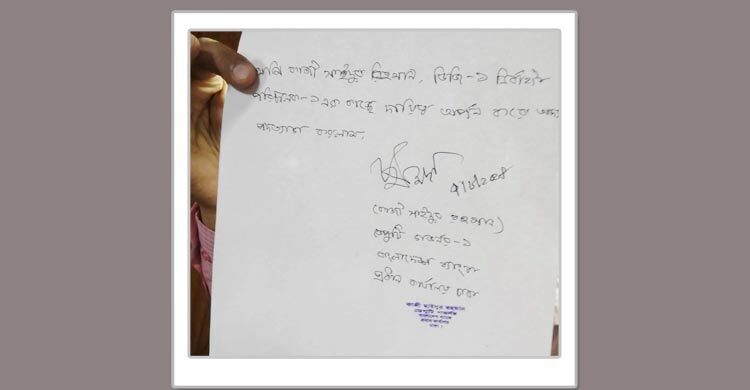 আমি কাজী ছাইদুর রহমান, ডিজি-১ নির্বাহী
পরিচালক-১ এর কাছে দায়িত্ব অর্পন করে অদ্য
পদত্যাগ করলাম।
(কাজী ছাইদুর রহমান)
ডেপুটি গভর্নর-১
বাংলাদেশ ব্যাংক
প্রধান কার্যালয় ঢাকা
কাজী ছাইদুর রহমান
ডেপুটি গভর্নর
বাংলাদেশ ব্যাংক
প্রধান কার্যালয়
ঢাকা।